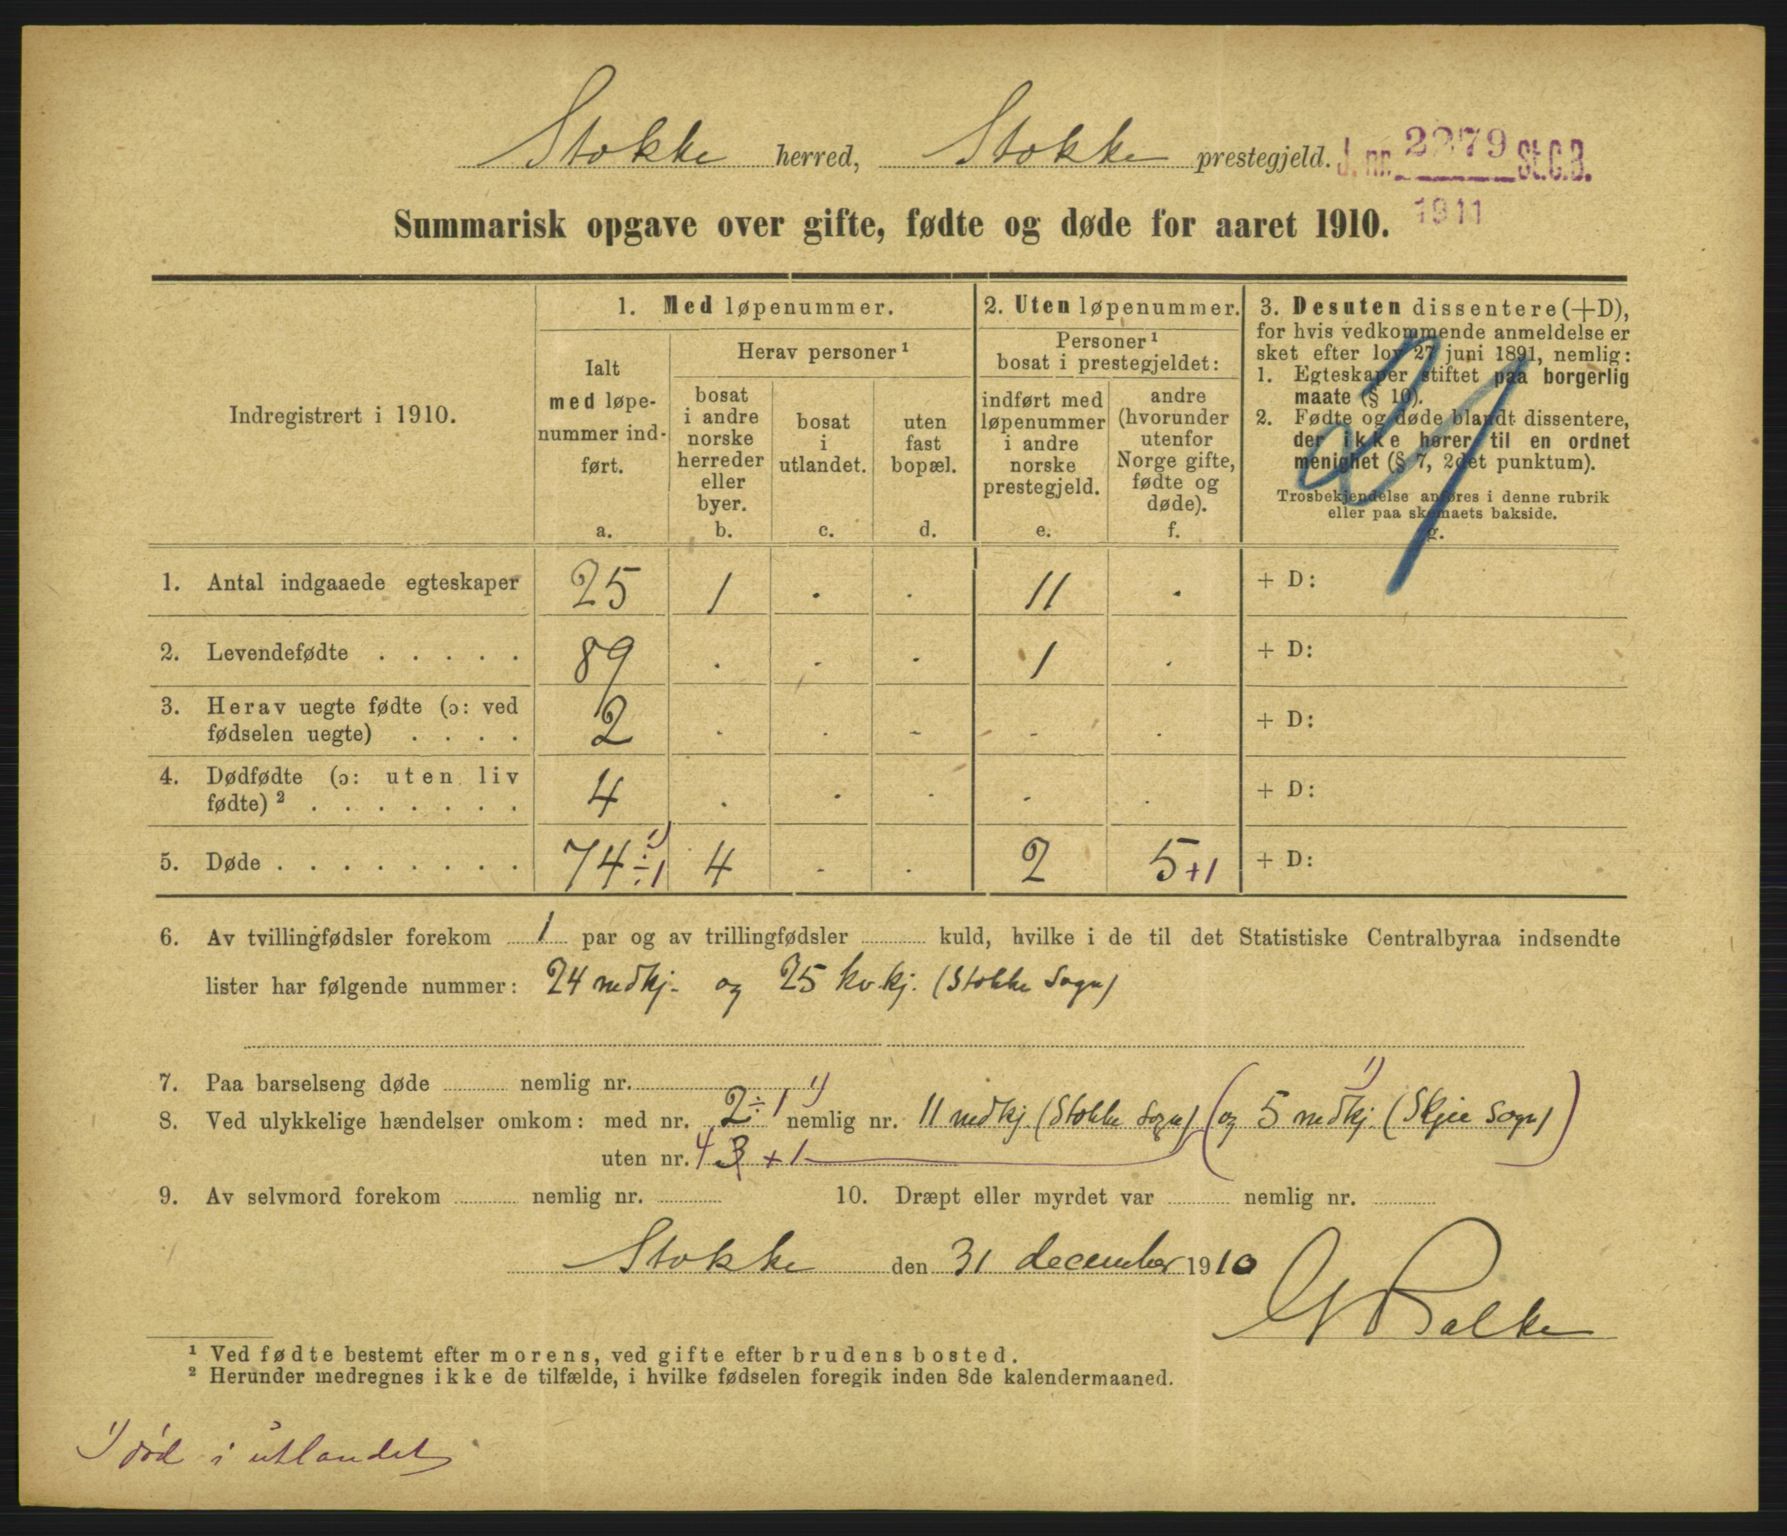 Stokke herred, Stokke prestegjeld. J. nr. 2279 St.C.B.
1911
Summarisk opgave over gifte, fødte og døde for aaret 1910.
Indregistrert i 1910.
1. Med løpenummer.
Ialt
med løpe-
nummer ind-
ført.
a.
Herav personer ¹
bosat
i andre
norske
herreder
eller
byer.
b.
bosat
i
utlandet.
c.
uten
fast
bopæl.
d.
2. Uten løpenummer.
Personer ¹
bosat i prestegjeldet:
indført med
løpenummer
i andre
norske
prestegjeld.
e.
andre
(hvorunder
utenfor
Norge gifte,
fødte og
døde).
f.
3. Desuten dissentere (+D),
for hvis vedkommende anmeldelse er
sket efter lov 27 juni 1891, nemlig:
1. Egteskaper stiftet paa borgerlig
maate (§ 10).
2. Fødte og døde blandt dissentere,
der ikke hører til en ordnet
menighet (§ 7, 2det punktum).
Trosbekjendelse anføres i denne rubrik
eller paa skemaets bakside.
g.
1. Antal indgaaede egteskaper 25 1 . . 11 . + D:
2. Levendefødte . . . . . 89 . . . 1 . + D:
3. Herav uegte fødte (ɔ: ved
fødselen uegte) . . . . 2 . . - - . + D:
4. Dødfødte (ɔ: uten liv
fødte) ² . . . . . . . 4 . . . . . + D:
5. Døde . . . . . . . . 74 ÷1 ¹) 4 . . 2 5 +1 + D:
6. Av tvillingfødsler forekom 1 par og av trillingfødsler kuld, hvilke i de til det Statistiske Centralbyraa indsendte
lister har følgende nummer: 24 mdkj. og 25 kv.kj. (Stokke Sogn)
7. Paa barselseng døde nemlig nr.
8. Ved ulykkelige hændelser omkom: med nr. 2 ÷1 ¹) nemlig nr. 11 mdkj. (Stokke Sogn) (og 5 mdkj. ¹) (Skjee Sogn))
uten nr. 4 3 +1
9. Av selvmord forekom nemlig nr. 10. Dræpt eller myrdet var nemlig nr.
Stokke den 31 december 1910
¹ Ved fødte bestemt efter morens, ved gifte efter brudens bosted.
² Herunder medregnes ikke de tilfælde, i hvilke fødselen foregik inden 8de kalendermaaned.
¹) død i utlandet